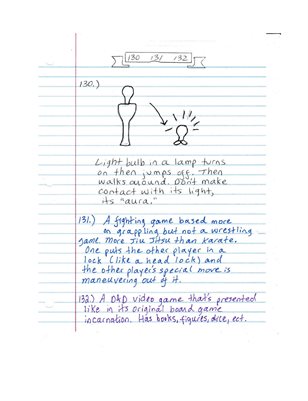 130 131 132
130.)
Light bulb in a lamp turns
on then jumps off. Then
walks around. Don't make
contact with its light,
its "aura."
131.) A fighting game based more
on grappling but not a wrestling
game. More Jiu Jitsu than karate.
One puts the other player in a
lock (like a head lock) and
the other player's special move is
maneuvering out of it.
132.) A D&D video game that's presented
like in its original board game
incarnation. Has books, figures, dice, ect.